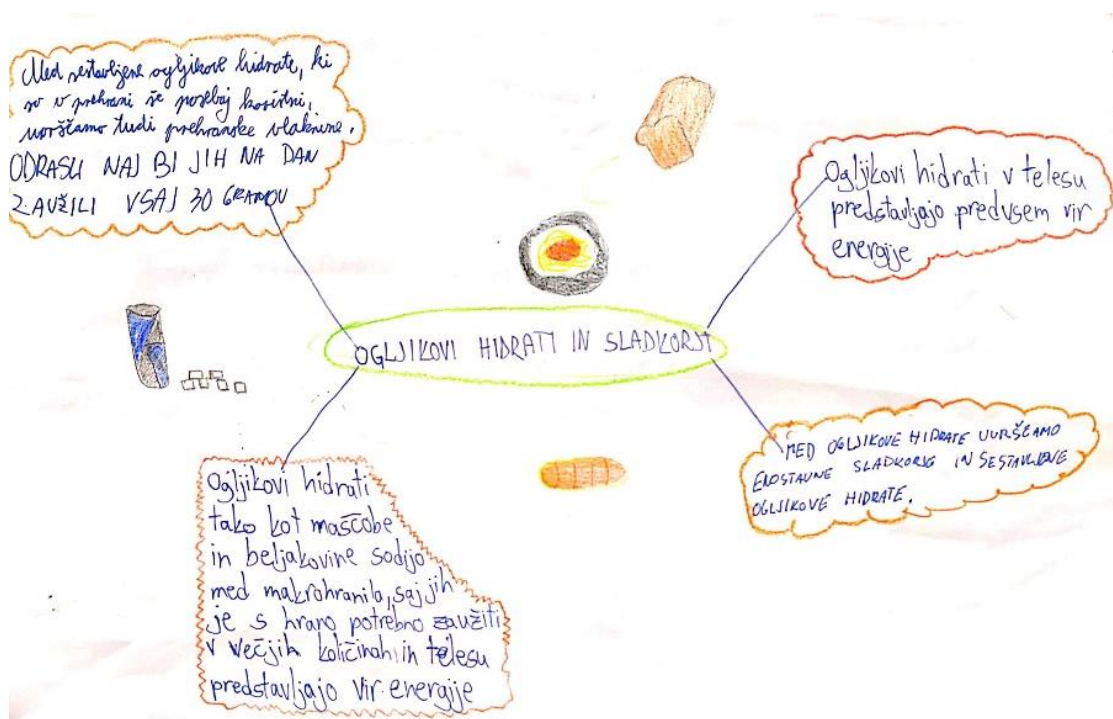 Med sestavljene ogljikove hidrate, ki
so v prehrani še posebaj koristni,
uvrščamo tudi prehranske vlaknine.
ODRASLI NAJ BI JIH NA DAN
ZAUŽILI VSAJ 30 GRAMOV
Ogljikovi hidrati v telesu
predstavljajo predvsem vir
energije
OGLJIKOVI HIDRATI IN SLADKORJI
MED OGLJIKOVE HIDRATE UVRŠČAMO
ENOSTAVNE SLADKORJE IN SESTAVLJENE
OGLJIKOVE HIDRATE.
Ogljikovi hidrati
tako kot maščobe
in beljakovine sodijo
med makrohranila, saj jih
je s hrano potrebno zaužiti
v večjih količinah in telesu
predstavljajo vir energije